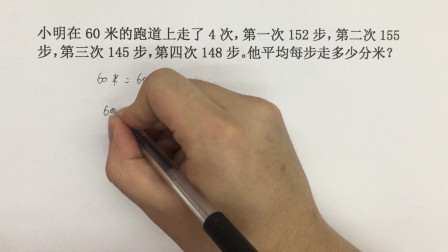 小明在 60 米的跑道上走了 4 次，第一次 152 步，第二次 155
步，第三次 145 步，第四次 148 步。他平均每步走多少分米？
60米 = 60
60